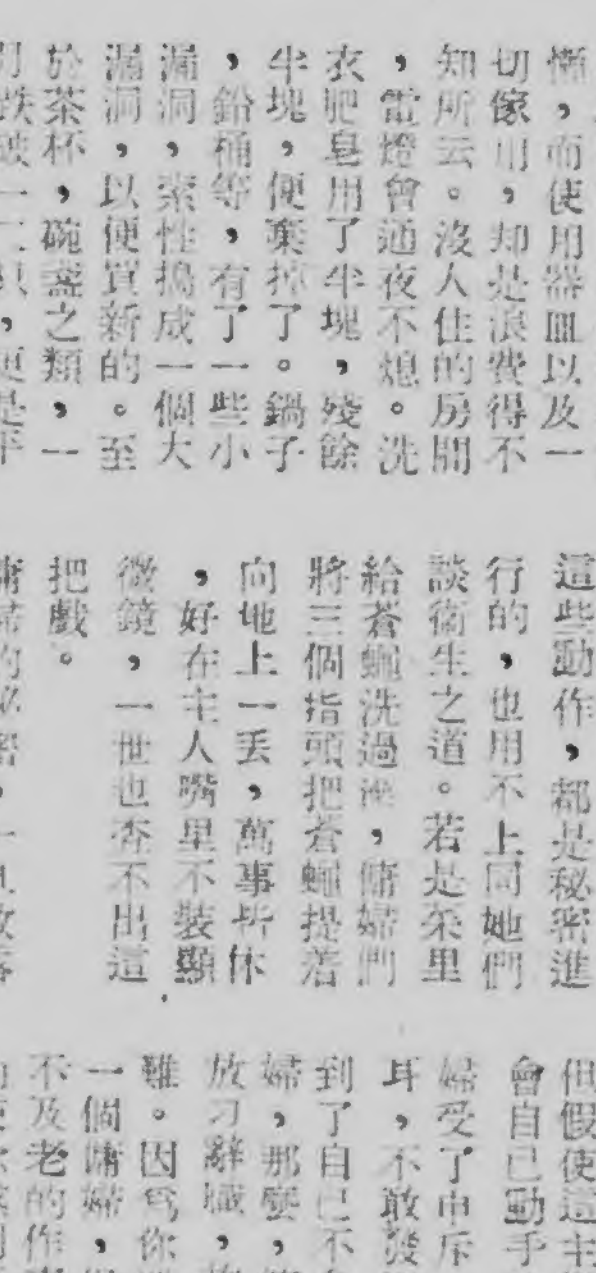 懶，而使用器皿以及一
切傢用，却是浪費得不
知所云。沒人住的房間
，電燈會通夜不熄。洗
衣肥皂用了半塊，殘餘
半塊，便棄掉了。鍋子
，鉛桶等，有了一些小
漏洞，索性搗成一個大
漏洞，以便買新的。至
於茶杯，碗盞之類，一
跌破一二只，更是平
這些動作，都是秘密進
行的，也用不上同她們
談衞生之道。若是菜里
給蒼蠅洗過，傭婦們
將三個指頭把蒼蠅提着
向地上一丟，萬事皆休
，好在主人嘴里不裝顯
微鏡，一世也查不出這
把戲。
傭婦的秘密，一
但假使這主
會自己動手
婦受了申斥
耳，不敢發
到了自己不
婦，那麼，
放刁辭職，
難。因爲你
一個傭婦，
不及老的作